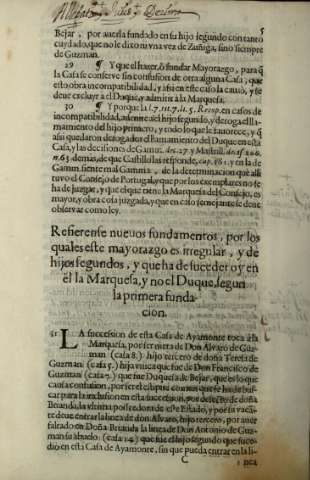 5
Bejar, por auerla fundado en su hijo segundo con tanto
cuydado, que no le dio mas vez de Zuñiga, sino siempre
de Guzman.
29 ¶ Y que el traer, ò fundar Mayorazgo, para q̃
la Casa se conserue sin confusion de otra alguna Casa, que
esto obra incompatibilidad, y assi en este caso la causò, y se
deue excluyr a el Duque, y admitir a la Marquesa.
30 ¶ Y porque la l. 7. tit. 7. li. 5. Recop. en casos de
incompatibilidad, admite a el hijo segundo, y deroga el lla-
mamiento del hijo primero, y todo lo que le fauorece, y q̃
assi quedaron derogados el llamamiento del Duque en esta
Casa, y las decisiones de Gamm.
n. 63. demas, de que Castillo las responde, cap. 181. y en la de
Gamm. siente mal Gamma, de la determinacion que alli
tuuo el Consejo de Portugal, y que por los exemplares no se
ha de juzgar, y que el que tiene la Marquesa del Consejo, es
mayor, y obra cosa juzgada, y que en caso semejante se deue
obseruar como ley.
Refierense nueuos fundamentos, por los
quales este mayorazgo es irregular, y de
hijos segundos, y que ha de suceder oy en
èl la Marquesa, y no el Duque, segun
la primera funda-
cion.
31 LA succession de esta Casa de Ayamonte toca a la
Marquesa, por ser nieta de Don Aluaro de Guz-
man (casa 8.) hijo tercero de doña Teresa de
Guzman (casa 5.) hija vnica que fue de Don Francisco de
Guzman (casa 2.) que fue Duquesa de Bejar, que es lo que
causa confusion, por ser el cipite comun que se ha de bus-
car para la inclusion en esta succession, por defecto de doña
Brianda, la vltima posseedora de este Estado, y por su vacã-
te deue entrar la linea de don Aluaro, hijo tercero, por auer
faltado en Doña Brianda la linea de Don Antonio de Guz-
man su abuelo: (casa 14.) que fue el hijo segundo que suce-
dio en esta Casa de Ayamonte, sin que pueda entrar en la li-
C
nea